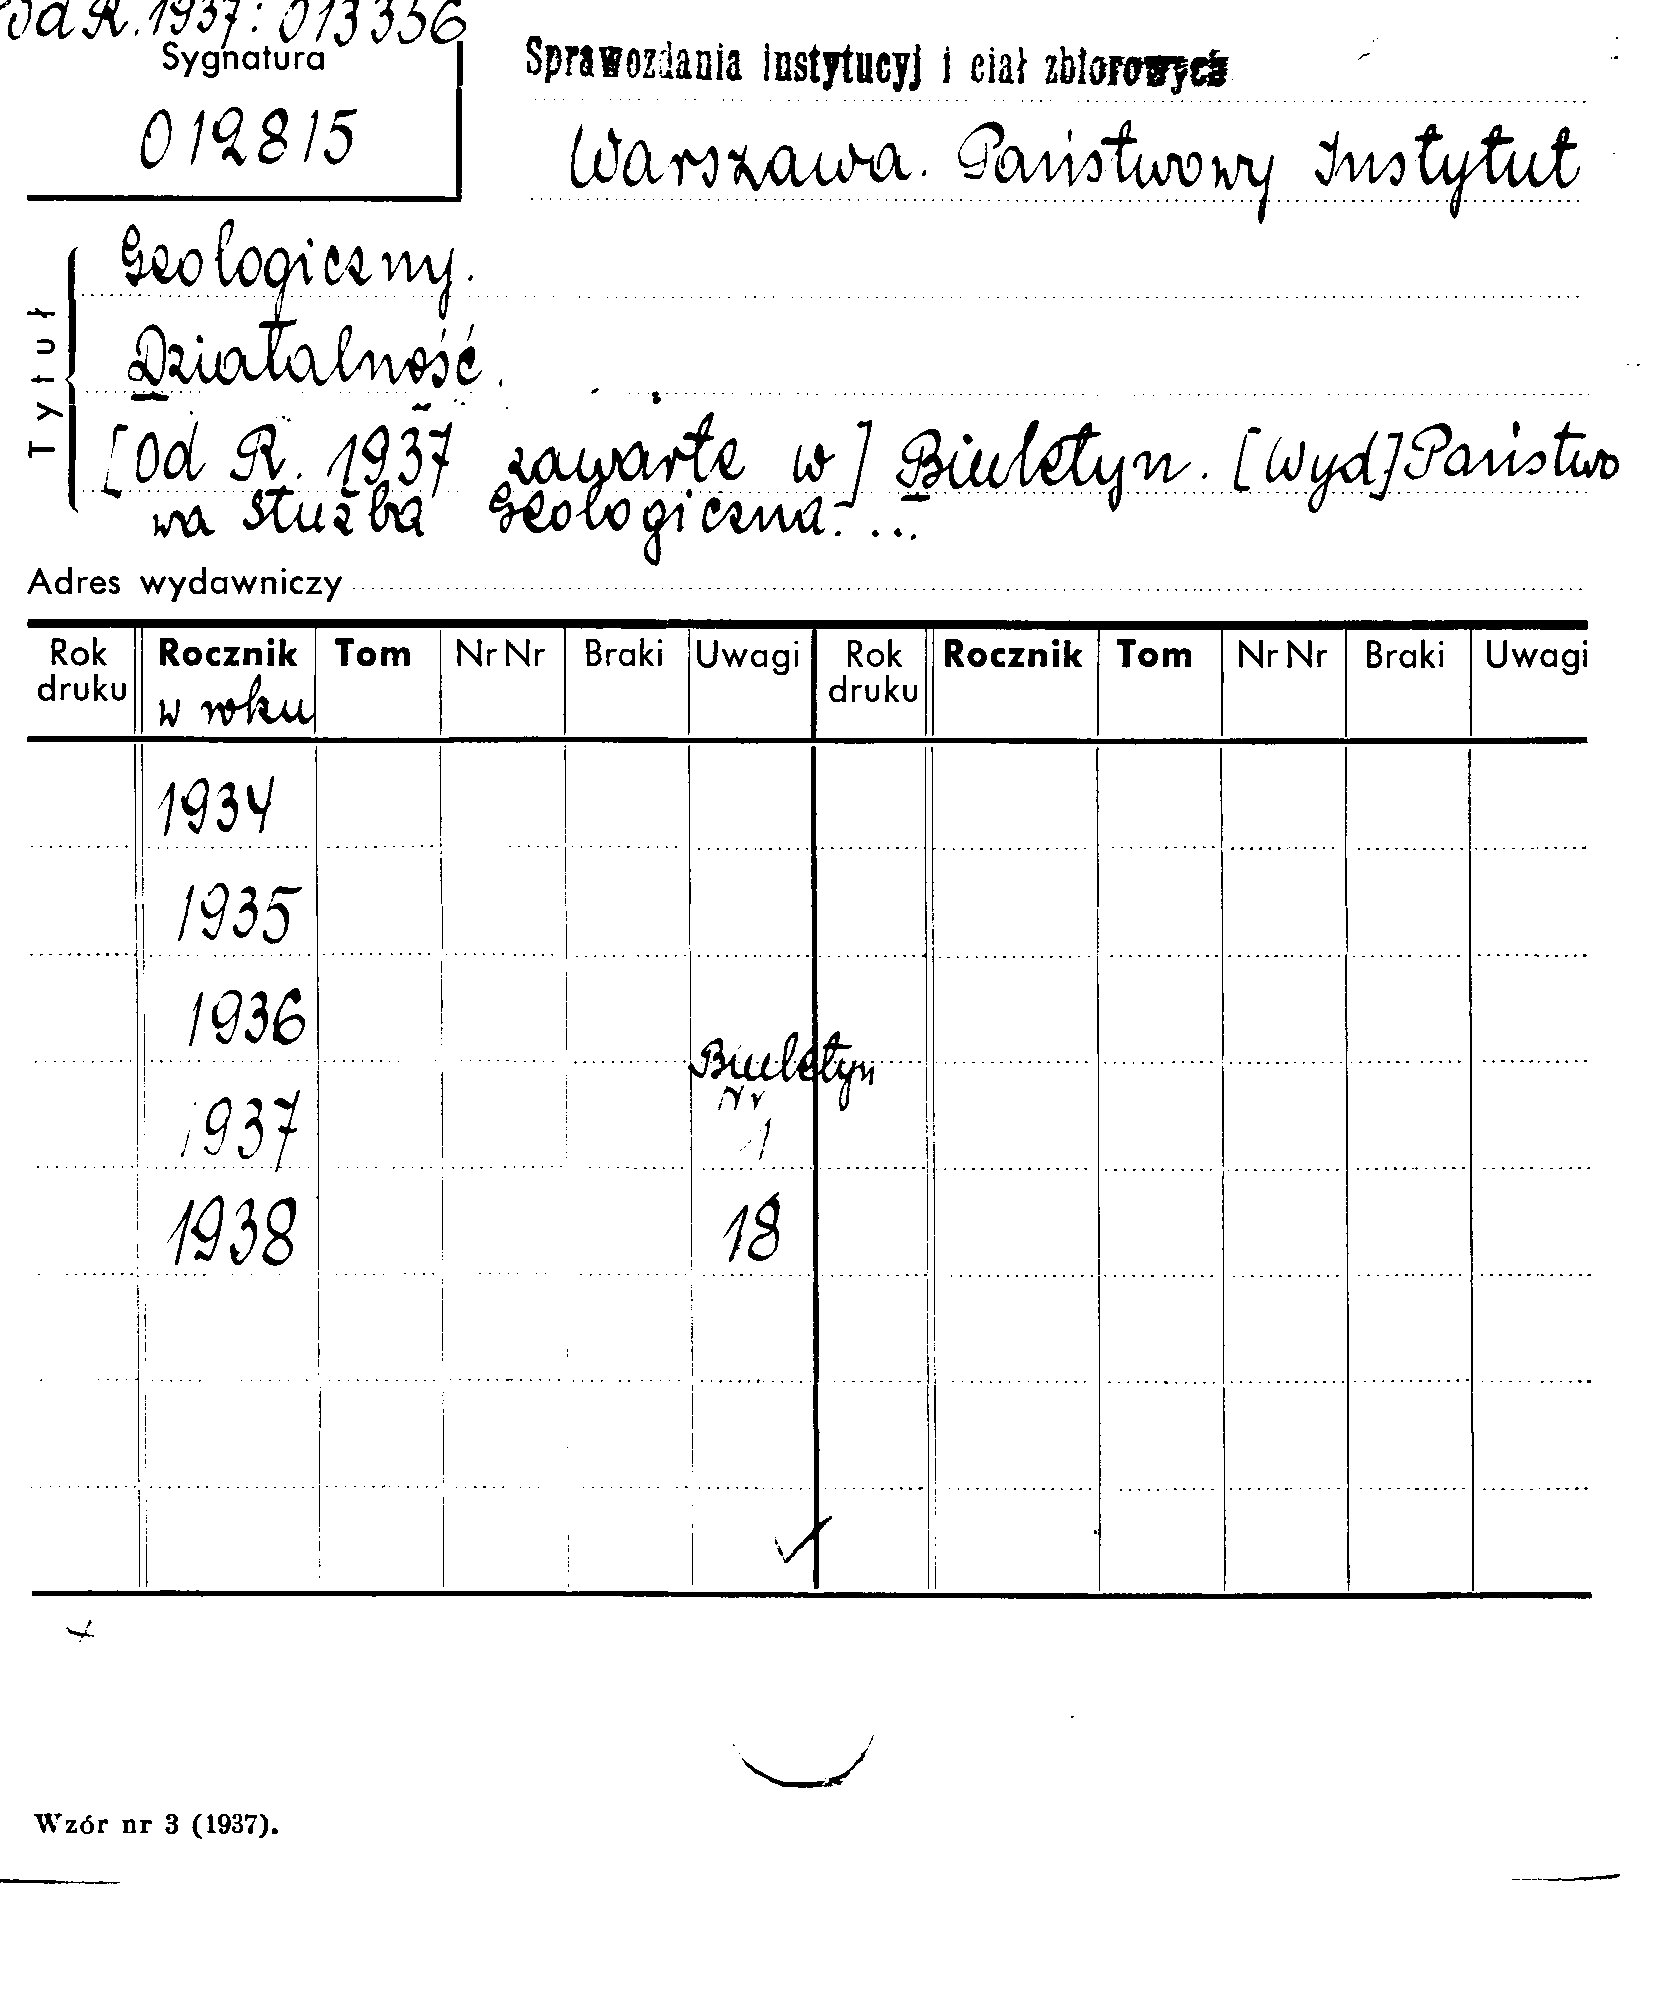 od R. 1937: 013356
Sygnatura
012815
Sprawozdania instytucyj i ciał zbiorowych
Warszawa. Państwowy Instytut
Geologiczny.
Działalność.
[Od R. 1937 zawarte w] Biuletyn. [Wyd] Państwo
wa Służba Geologiczna. ...
Tytuł
Adres wydawniczy
Rok druku Rocznik Tom Nr Nr Braki Uwagi Rok druku Rocznik Tom Nr Nr Braki Uwagi
w roku
1934
1935
1936
Biuletyn
Nr
1937 1
1938 18
Wzór nr 3 (1937).